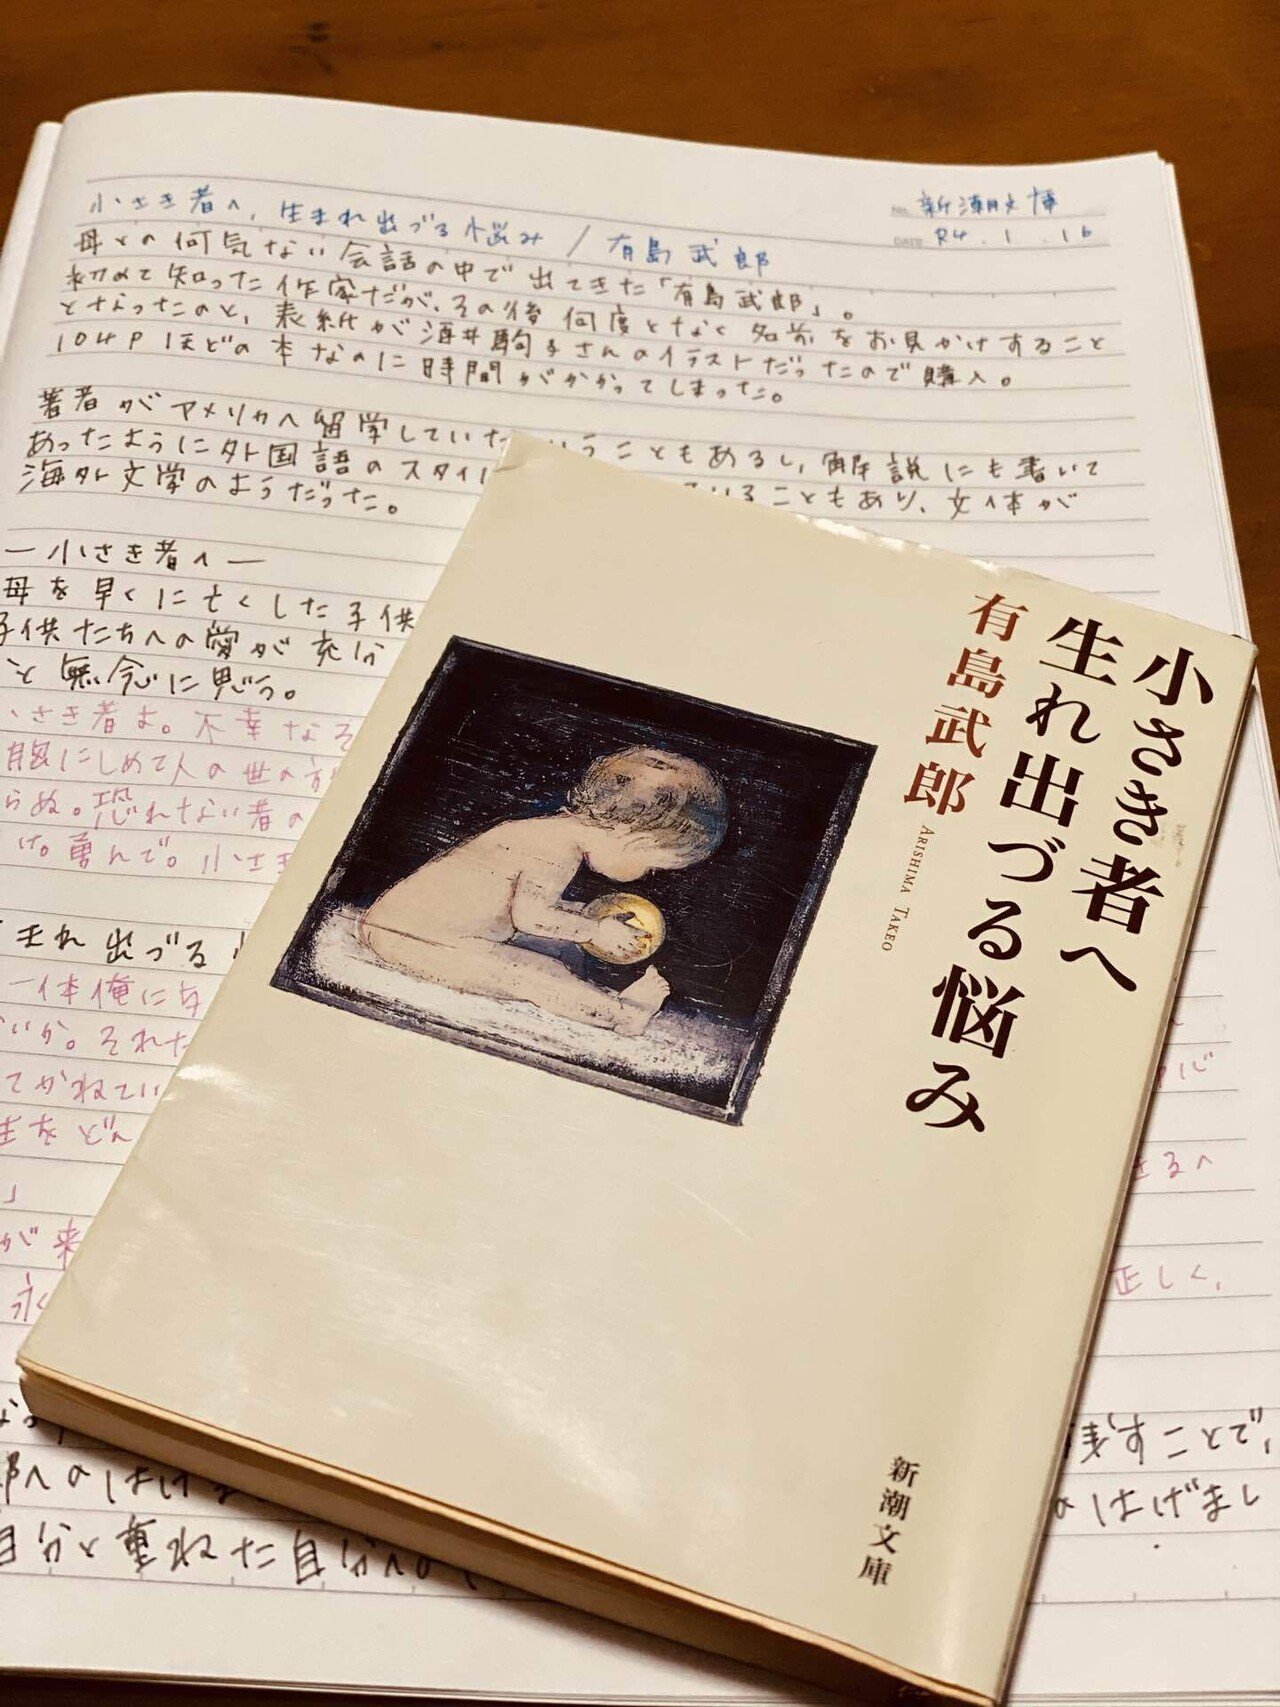 小さき者へ、生まれ出づる悩み / 有島武郎
No. 新潮文庫
DATE R4.1.16
母との何気ない会話の中で出てきた「有島武郎」。
初めて知った作家だが、その後何度となく名前をお見かけすること
となったのと、表紙が酒井駒子さんのイラストだったので購入。
104Pほどの本なのに時間がかかってしまった。
著者がアメリカへ留学していた いうこともあるし、解説にも書いて
あったように外国語のスタイ いることもあり、文体が
海外文学のようだった。
―小さき者へ―
母を早くに亡くした子供
子供たちへの愛が充分
と無念に思う。
さき者よ。不幸なそ
胸にしめて人の世の
らぬ。恐れない者の
け。勇んで。小さき
まれ出づる
一体俺に与
いか。それた
てかねてい
生をどん
さるへ
」
が来
永く
正しく、
残すことで、
へのはげま
のはげまし
自分と重ねた自分への
小さき者へ
生れ出づる悩み
有島武郎
ARISHIMA TAKEO
新潮文庫